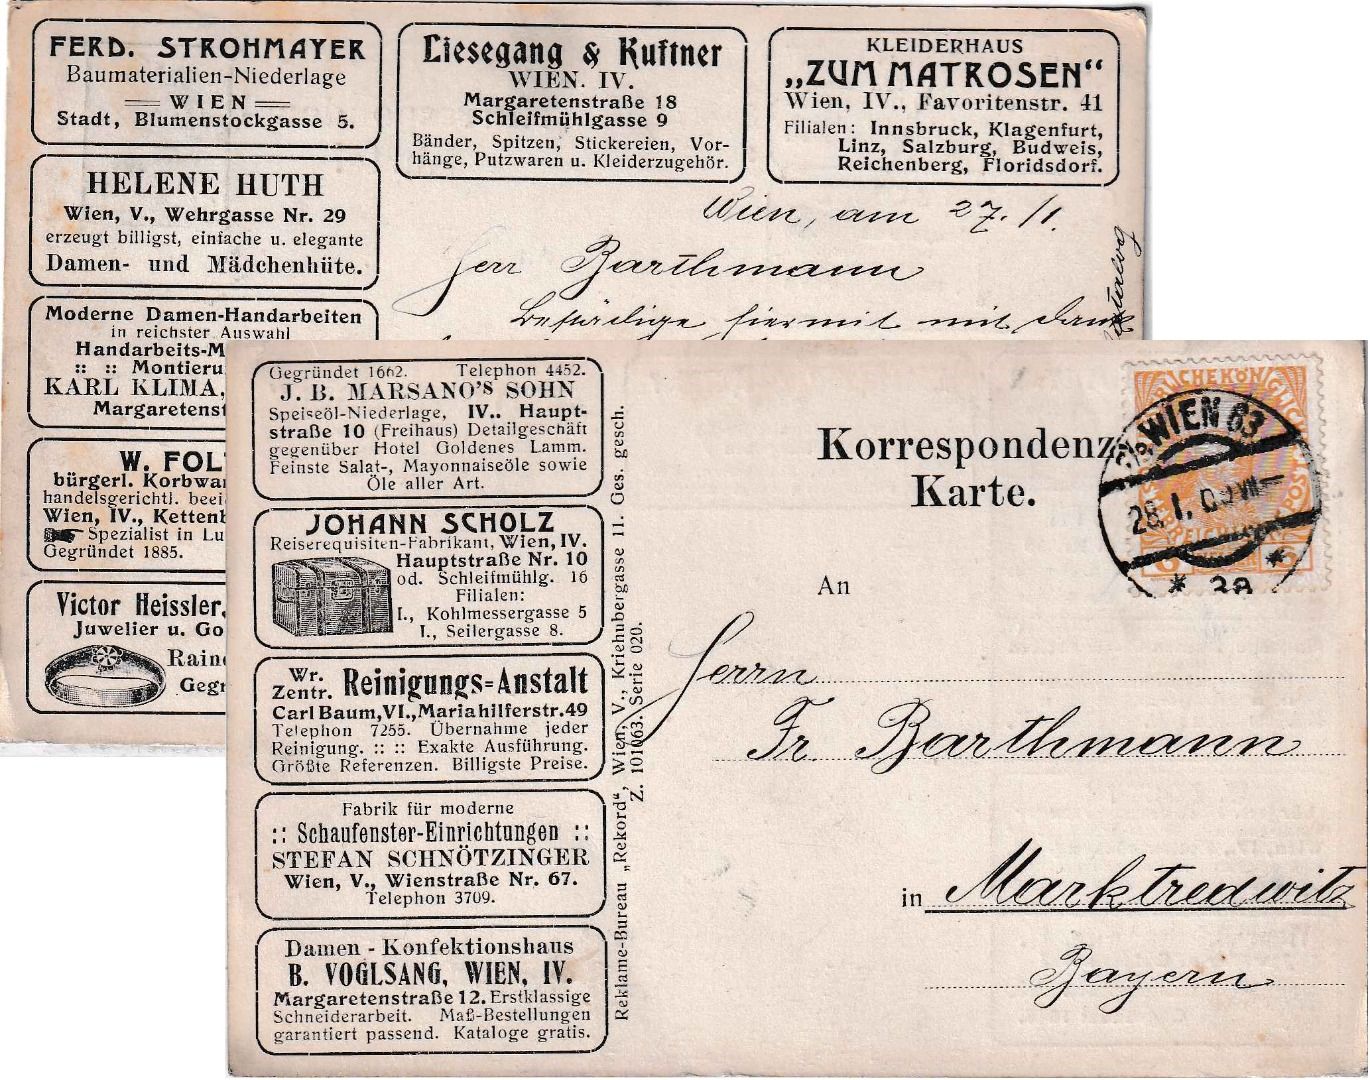 FERD. STROHMAYER
Baumaterialien-Niederlage
WIEN
Stadt, Blumenstockgasse 5.
Liesegang & Kuftner
WIEN. IV.
Margaretenstraße 18
Schleifmühlgasse 9
Bänder, Spitzen, Stickereien, Vor-
hänge, Putzwaren u. Kleiderzugehör.
KLEIDERHAUS
„ZUM MATROSEN“
Wien, IV., Favoritenstr. 41
Filialen: Innsbruck, Klagenfurt,
Linz, Salzburg, Budweis,
Reichenberg, Floridsdorf.
HELENE HUTH
Wien, V., Wehrgasse Nr. 29
erzeugt billigst, einfache u. elegante
Damen- und Mädchenhüte.
Wien, am 27./1.
Herr Barthmann
Bestädige hiermit mit Dank
Moderne Damen-Handarbeiten
in reichster Auswahl
Handarbeits-M
:: :: Montieru
KARL KLIMA,
Margaretenst
W. FOL
bürgerl. Korbwa
handelsgerichtl. beei
Wien, IV., Kettenb
Spezialist in Lu
Gegründet 1885.
Victor Heissler,
Juwelier u. Go
Raine
Gegr
Gegründet 1662. Telephon 4452.
J. B. MARSANO'S SOHN
Speiseöl-Niederlage, IV.. Haupt-
straße 10 (Freihaus) Detailgeschäft
gegenüber Hotel Goldenes Lamm.
Feinste Salat-, Mayonnaiseöle sowie
Öle aller Art.
JOHANN SCHOLZ
Reiserequisiten-Fabrikant, Wien, IV.
Hauptstraße Nr. 10
od. Schleifmühlg. 16
Filialen:
I., Kohlmessergasse 5
I., Seilergasse 8.
Wr.
Zentr. Reinigungs=Anstalt
Carl Baum, VI., Mariahilferstr. 49
Telephon 7255. Übernahme jeder
Reinigung. :: :: Exakte Ausführung.
Größte Referenzen. Billigste Preise.
Fabrik für moderne
:: Schaufenster-Einrichtungen ::
STEFAN SCHNÖTZINGER
Wien, V., Wienstraße Nr. 67.
Telephon 3709.
Damen - Konfektionshaus
B. VOGLSANG, WIEN, IV.
Margaretenstraße 12. Erstklassige
Schneiderarbeit. Maß-Bestellungen
garantiert passend. Kataloge gratis.
Reklame-Bureau „Rekord“, Wien, V., Kriehubergasse 11. Ges. gesch.
Z. 101063. Serie 020.
Korrespondenz
Karte.
WIEN 63
28. I.
An
Herrn
Fr. Barthmann
in Marktredwitz
Bayern